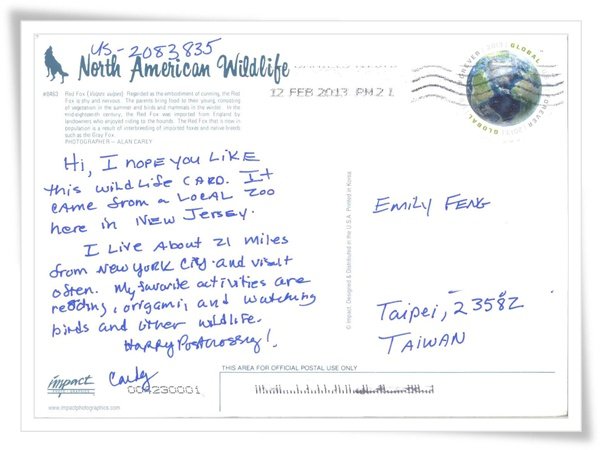 US-2083835
North American Wildlife
12 FEB 2013 PM 2 L
FOREVER 2013 GLOBAL
GLOBAL 2013 FOREVER
#0483 Red Fox (Vulpes vulpes) Regarded as the embodiment of cunning, the Red
Fox is shy and nervous. The parents bring food to their young, consisting
of vegetation in the summer and birds and mammals in the winter. In the
mid-eighteenth century, the Red Fox was imported from England by
landowners who enjoyed riding to the hounds. The Red Fox that is now in
population is a result of interbreeding of imported foxes and native breeds
such as the Gray Fox.
PHOTOGRAPHER – ALAN CAREY
Hi, I hope you like
this wildlife card. It
came from a local zoo
here in New Jersey.
I live about 21 miles
from New York City and visit
often. My favorite activities are
reading, origami, and watching
birds and other wildlife.
Happy Postcrossing!
Carly
Emily Feng
Taipei, 23582
TAIWAN
© Impact, Designed & Distributed in the U.S.A. Printed in Korea
impact
004230001
www.impactphotographics.com
THIS AREA FOR OFFICIAL POSTAL USE ONLY